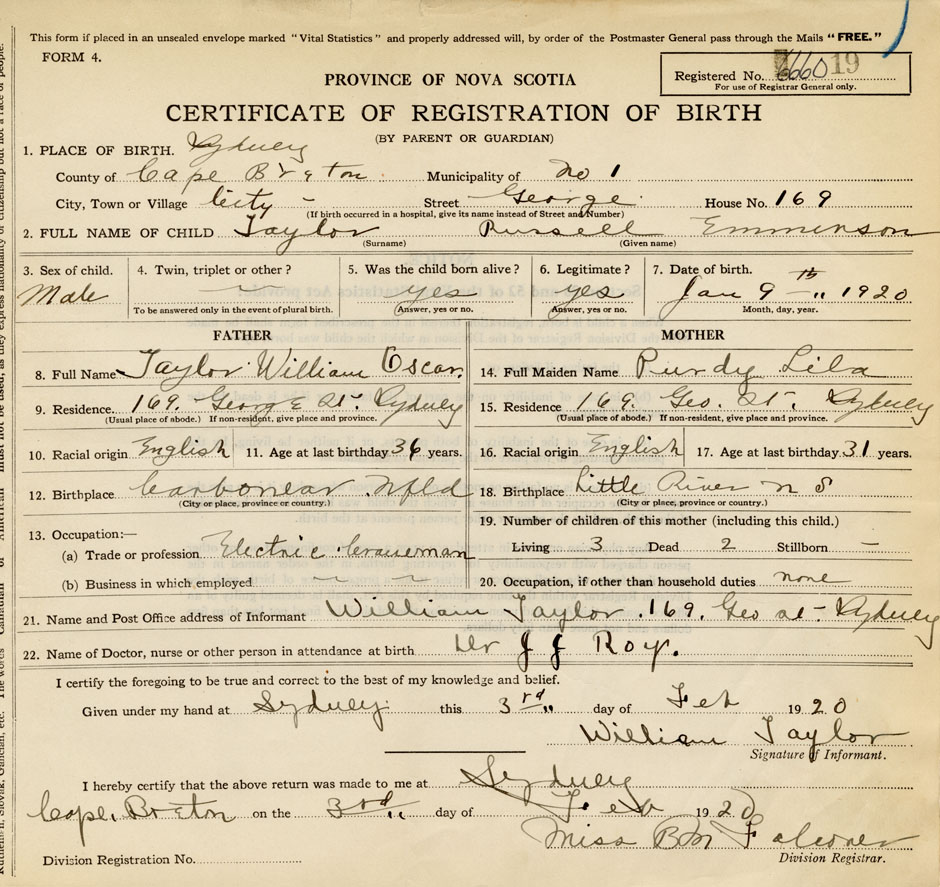 This form if placed in an unsealed envelope marked "Vital Statistics" and properly addressed will, by order of the Postmaster General pass through the Mails "FREE."
FORM 4.
PROVINCE OF NOVA SCOTIA
Registered No. 6660 19
For use of Registrar General only.
CERTIFICATE OF REGISTRATION OF BIRTH
(BY PARENT OR GUARDIAN)
1. PLACE OF BIRTH. Sydney
County of Cape Breton Municipality of No 1
City, Town or Village City - Street George House No. 169
(If birth occurred in a hospital, give its name instead of Street and Number)
2. FULL NAME OF CHILD Taylor Russell Emminson
(Surname) (Given name)
3. Sex of child. 4. Twin, triplet or other? 5. Was the child born alive? 6. Legitimate? 7. Date of birth.
Male — yes yes Jan 9th 1920
To be answered only in the event of plural birth. Answer, yes or no. Answer, yes or no. Month, day, year.
FATHER MOTHER
8. Full Name Taylor William Oscar 14. Full Maiden Name Purdy Lila
9. Residence. 169. George St. Sydney 15. Residence 169. Geo. St. Sydney
(Usual place of abode.) If non-resident, give place and province. (Usual place of abode.) If non-resident, give place and province.
10. Racial origin English 11. Age at last birthday 36 years. 16. Racial origin English 17. Age at last birthday 31 years.
12. Birthplace Carbonear Nfld 18. Birthplace Little River N S
(City or place, province or country.) (City or place, province or country.)
13. Occupation:— 19. Number of children of this mother (including this child.)
(a) Trade or profession Electric Craneman Living 3 Dead 2 Stillborn —
(b) Business in which employed — — 20. Occupation, if other than household duties none
21. Name and Post Office address of Informant William Taylor. 169. Geo st- Sydney
22. Name of Doctor, nurse or other person in attendance at birth Dr J J Roy.
I certify the foregoing to be true and correct to the best of my knowledge and belief.
Given under my hand at Sydney this 3rd day of Feb 1920
William Taylor
Signature of Informant.
I hereby certify that the above return was made to me at Sydney
Cape Breton on the 3rd day of Feb 1920
Miss B M Falconer
Division Registration No. Division Registrar.